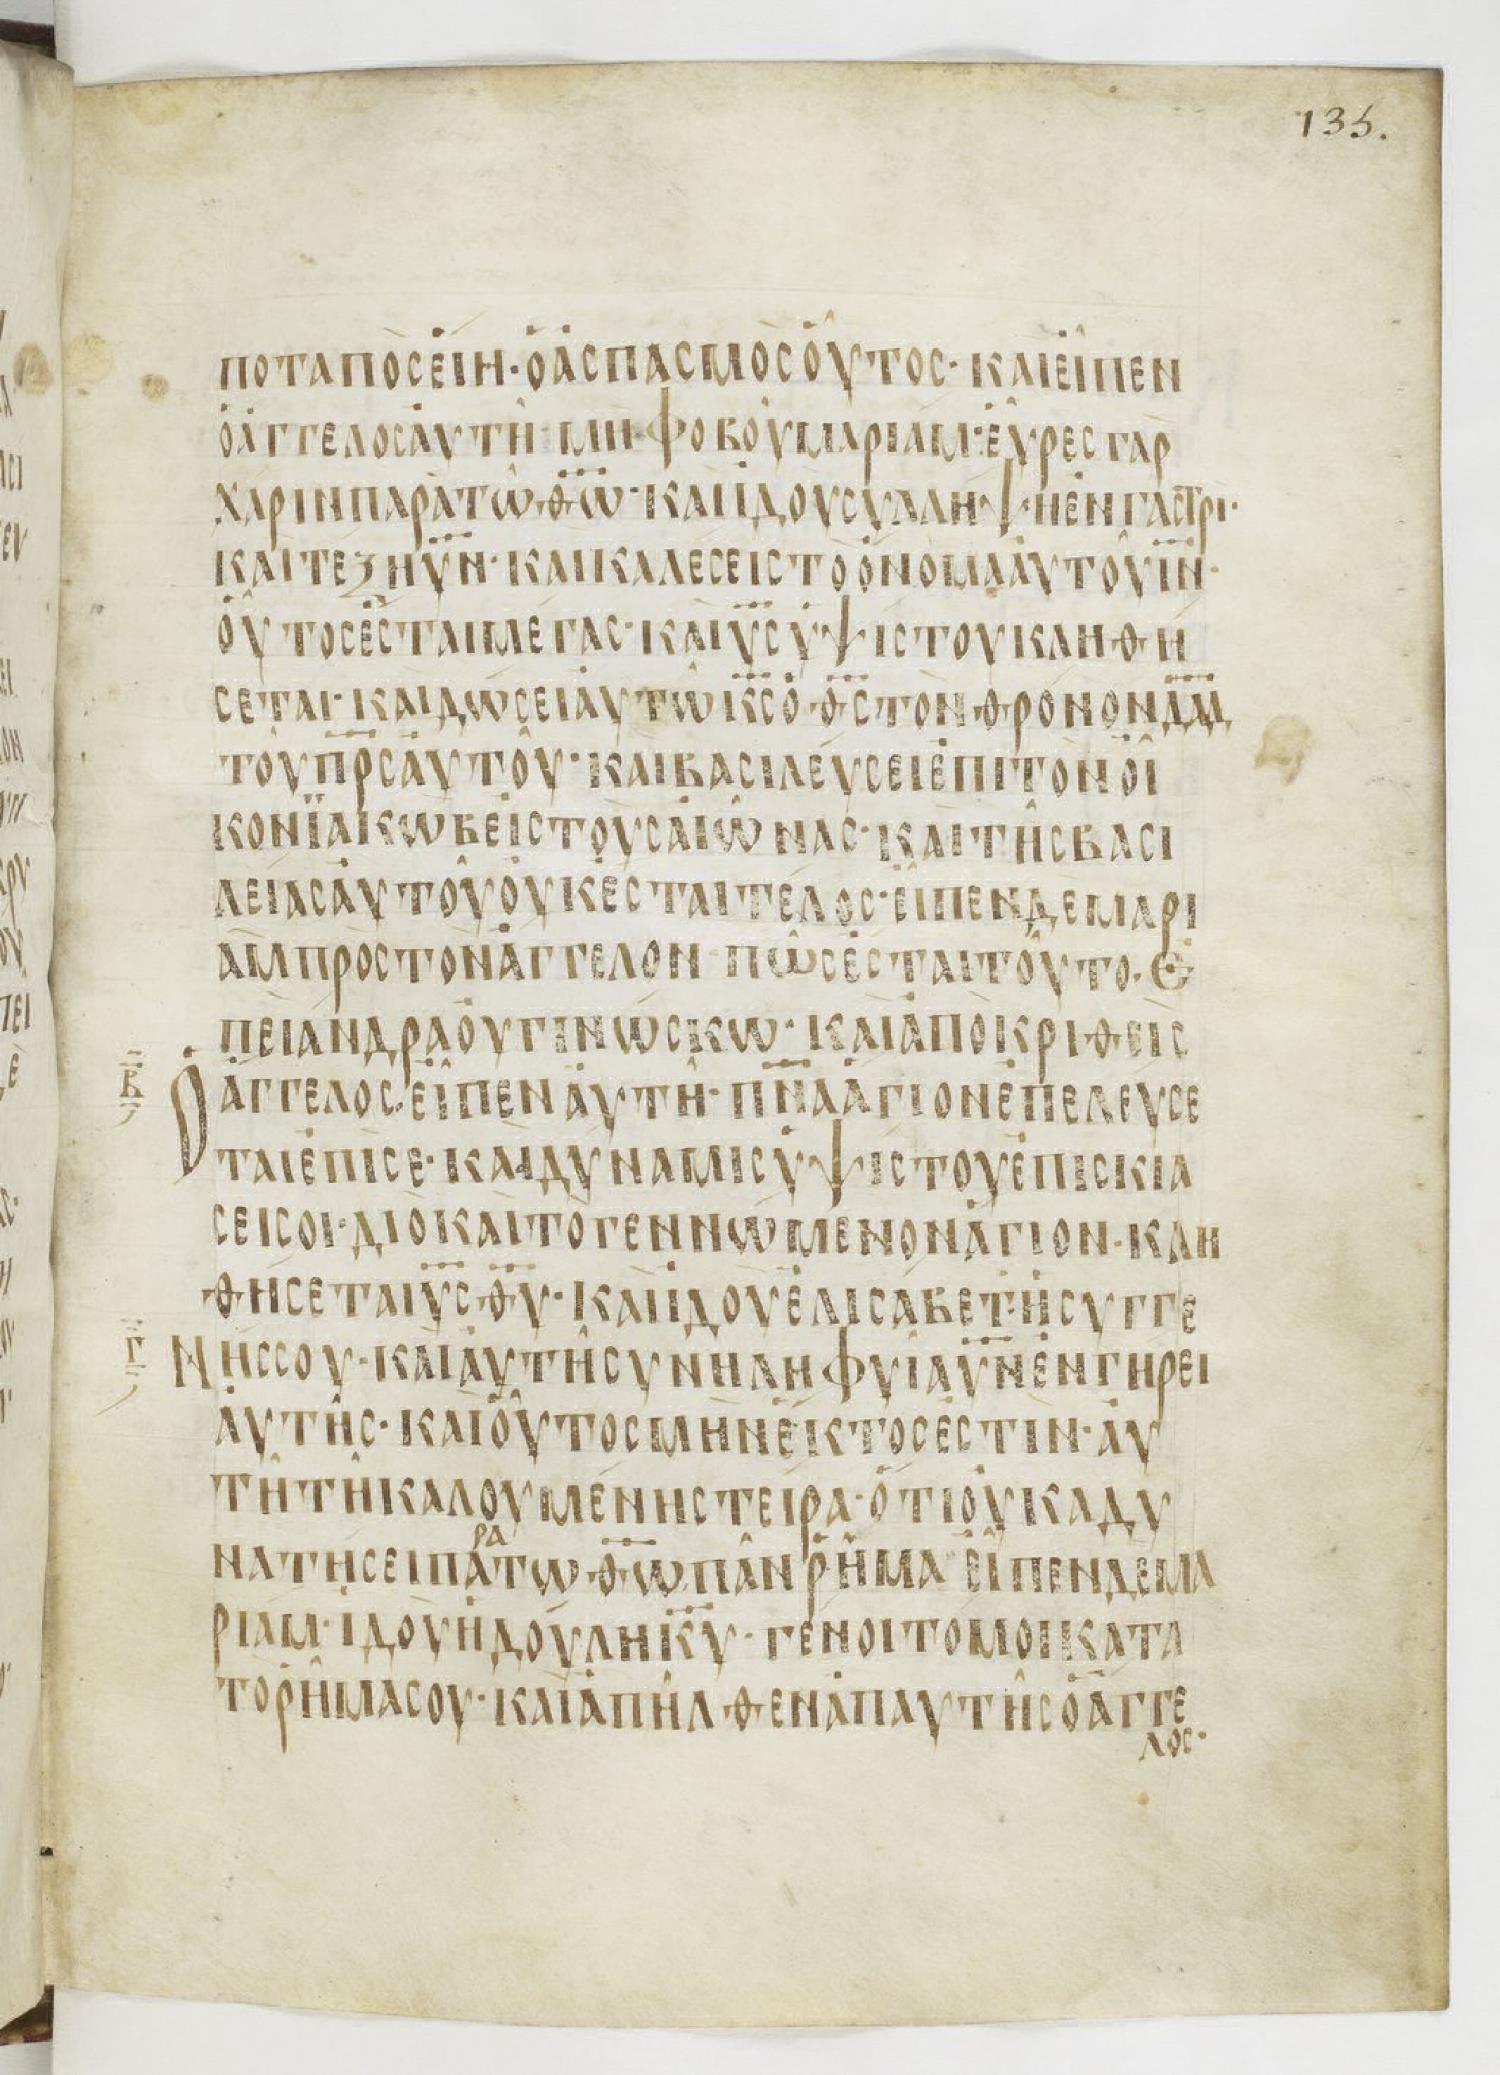 135.
ΠΟΤΑΠΟΣΕΙΗ·ΟΑΣΠΑΣΜΟΣΟΥΤΟΣ·ΚΑΙΕΙΠΕΝ
ΟΑΓΓΕΛΟΣΑΥΤΗ·ΜΗ·ΦΟΒΟΥΜΑΡΙΑΜ·ΕΥΡΕΣΓΑΡ
ΧΑΡΙΝΠΑΡΑΤΩΘΩ·ΚΑΙΙΔΟΥΣΥΛΛΗΨΗΕΝΓΑΣΤΡΙ·
ΚΑΙΤΕΞΗΥΝ·ΚΑΙΚΑΛΕΣΕΙΣΤΟΟΝΟΜΑΑΥΤΟΥΙΝ·
ΟΥΤΟΣΕΣΤΑΙΜΕΓΑΣ·ΚΑΙΥΣΥΨΙΣΤΟΥΚΛΗΘΗ
ΣΕΤΑΙ·ΚΑΙΔΩΣΕΙΑΥΤΩΚΣΟΘΣΤΟΝΘΡΟΝΟΝΔΑΔ
ΤΟΥΠΡΣΑΥΤΟΥ·ΚΑΙΒΑΣΙΛΕΥΣΕΙΕΠΙΤΟΝΟΙ
ΚΟΝΪΑΚΩΒΕΙΣΤΟΥΣΑΙΩΝΑΣ·ΚΑΙΤΗΣΒΑΣΙ
ΛΕΙΑΣΑΥΤΟΥΟΥΚΕΣΤΑΙΤΕΛΟΣ·ΕΙΠΕΝΔΕΜΑΡΙ
ΑΜΠΡΟΣΤΟΝΑΓΓΕΛΟΝ·ΠΩΣΕΣΤΑΙΤΟΥΤΟ·Ε
ΠΕΙΑΝΔΡΑΟΥΓΙΝΩΣΚΩ·ΚΑΙΑΠΟΚΡΙΘΕΙΣ
Β ΟΑΓΓΕΛΟΣ·ΕΙΠΕΝΑΥΤΗ·ΠΝΑΑΓΙΟΝΕΠΕΛΕΥΣΕ
ΤΑΙΕΠΙΣΕ·ΚΑΙΔΥΝΑΜΙΣΥΨΙΣΤΟΥΕΠΙΣΚΙΑ
ΣΕΙΣΟΙ·ΔΙΟΚΑΙΤΟΓΕΝΝΩΜΕΝΟΝΑΓΙΟΝ·ΚΛΗ
ΘΗΣΕΤΑΙΥΣΘΥ·ΚΑΙΙΔΟΥΕΛΙΣΑΒΕΤ·ΗΣΥΓΓΕ
Γ ΝΗΣΣΟΥ·ΚΑΙΑΥΤΗΣΥΝΗΛΗΦΥΙΑΥΝΕΝΓΗΡΕΙ
ΑΥΤΗΣ·ΚΑΙΟΥΤΟΣΜΗΝΕΚΤΟΣΕΣΤΙΝ·ΑΥ
ΤΗΤΗΚΑΛΟΥΜΕΝΗΣΤΕΙΡΑ·ΟΤΙΟΥΚΑΔΥ
ΡΑ
ΝΑΤΗΣΕΙΠΑΤΩΘΩΠΑΝΡΗΜΑ·ΕΙΠΕΝΔΕΜΑ
ΡΙΑΜ·ΙΔΟΥΗΔΟΥΛΗΚΥ·ΓΕΝΟΙΤΟΜΟΙΚΑΤΑ
ΤΟΡΗΜΑΣΟΥ·ΚΑΙΑΠΗΛΘΕΝΑΠΑΥΤΗΣΟΑΓΓΕ
ΛΟΣ·